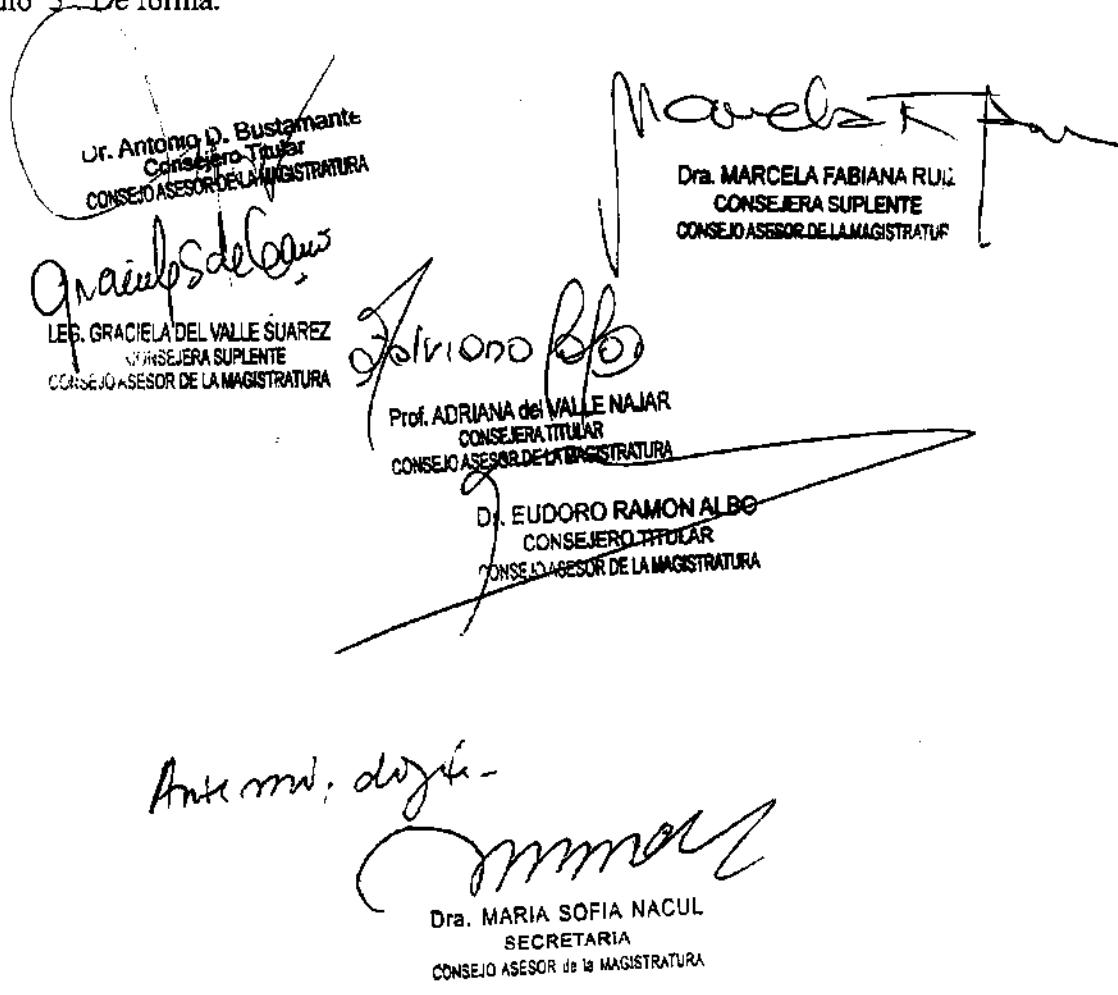 De forma.
Dr. Antonio D. Bustamante
Consejero Titular
CONSEJO ASESOR DE LA MAGISTRATURA
Dra. MARCELA FABIANA RUIZ
CONSEJERA SUPLENTE
CONSEJO ASESOR DE LA MAGISTRATUR
LEG. GRACIELA DEL VALLE SUAREZ
CONSEJERA SUPLENTE
CONSEJO ASESOR DE LA MAGISTRATURA
Prof. ADRIANA del VALLE NAJAR
CONSEJERA TITULAR
CONSEJO ASESOR DE LA MAGISTRATURA
Dr. EUDORO RAMON ALBO
CONSEJERO TITULAR
CONSEJO ASESOR DE LA MAGISTRATURA
Ante mí, doy fe.-
Dra. MARIA SOFIA NACUL
SECRETARIA
CONSEJO ASESOR de la MAGISTRATURA